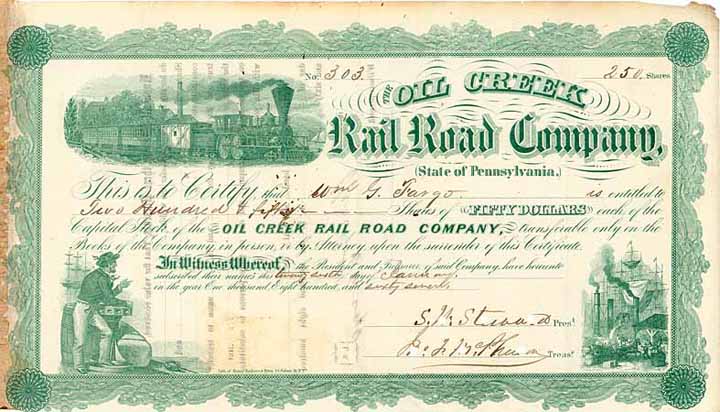 No. 303. 250. Shares
THE OIL CREEK
Rail Road Company,
(State of Pennsylvania.)
This is to Certify that Wm G. Fargo is entitled to
Two Hundred & fifty Shares of FIFTY DOLLARS each of the
Capital Stock of the OIL CREEK RAIL ROAD COMPANY, transferable only on the
Books of the Company, in person, or by Attorney upon the surrender of this Certificate.
In Witness Whereof, the President and Treasurer of said Company, have hereunto
subscribed their names this twenty sixth day of January
in the year One thousand, Eight hundred, and sixty seven.
Prest.
Treasr.